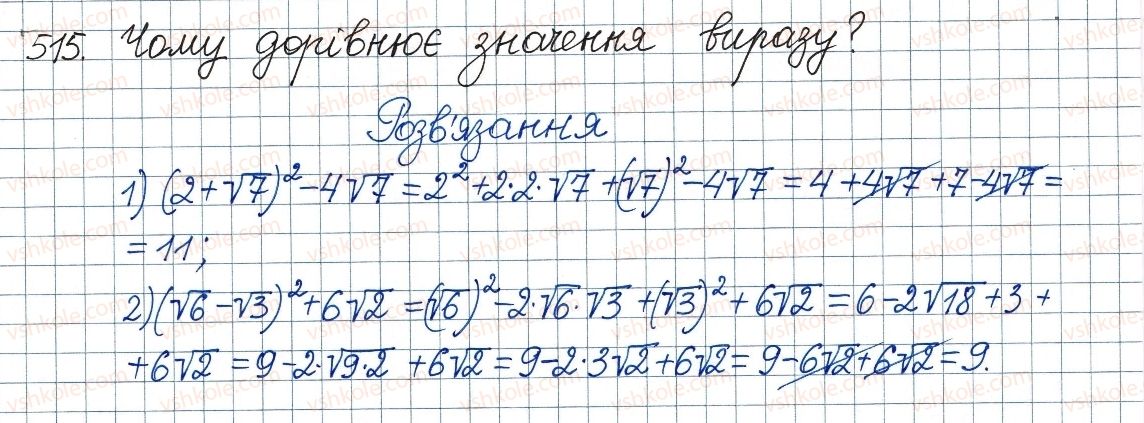 515. Чому дорівнює значення виразу?
Розв'язання
1) (2+√7)²-4√7 = 2²+2·2·√7+(√7)²-4√7 = 4+4√7+7-4√7 =
= 11;
2) (√6-√3)²+6√2 = (√6)²-2·√6·√3+(√3)²+6√2 = 6-2√18+3+
+6√2 = 9-2·√9·2+6√2 = 9-2·3√2+6√2 = 9-6√2+6√2 = 9.